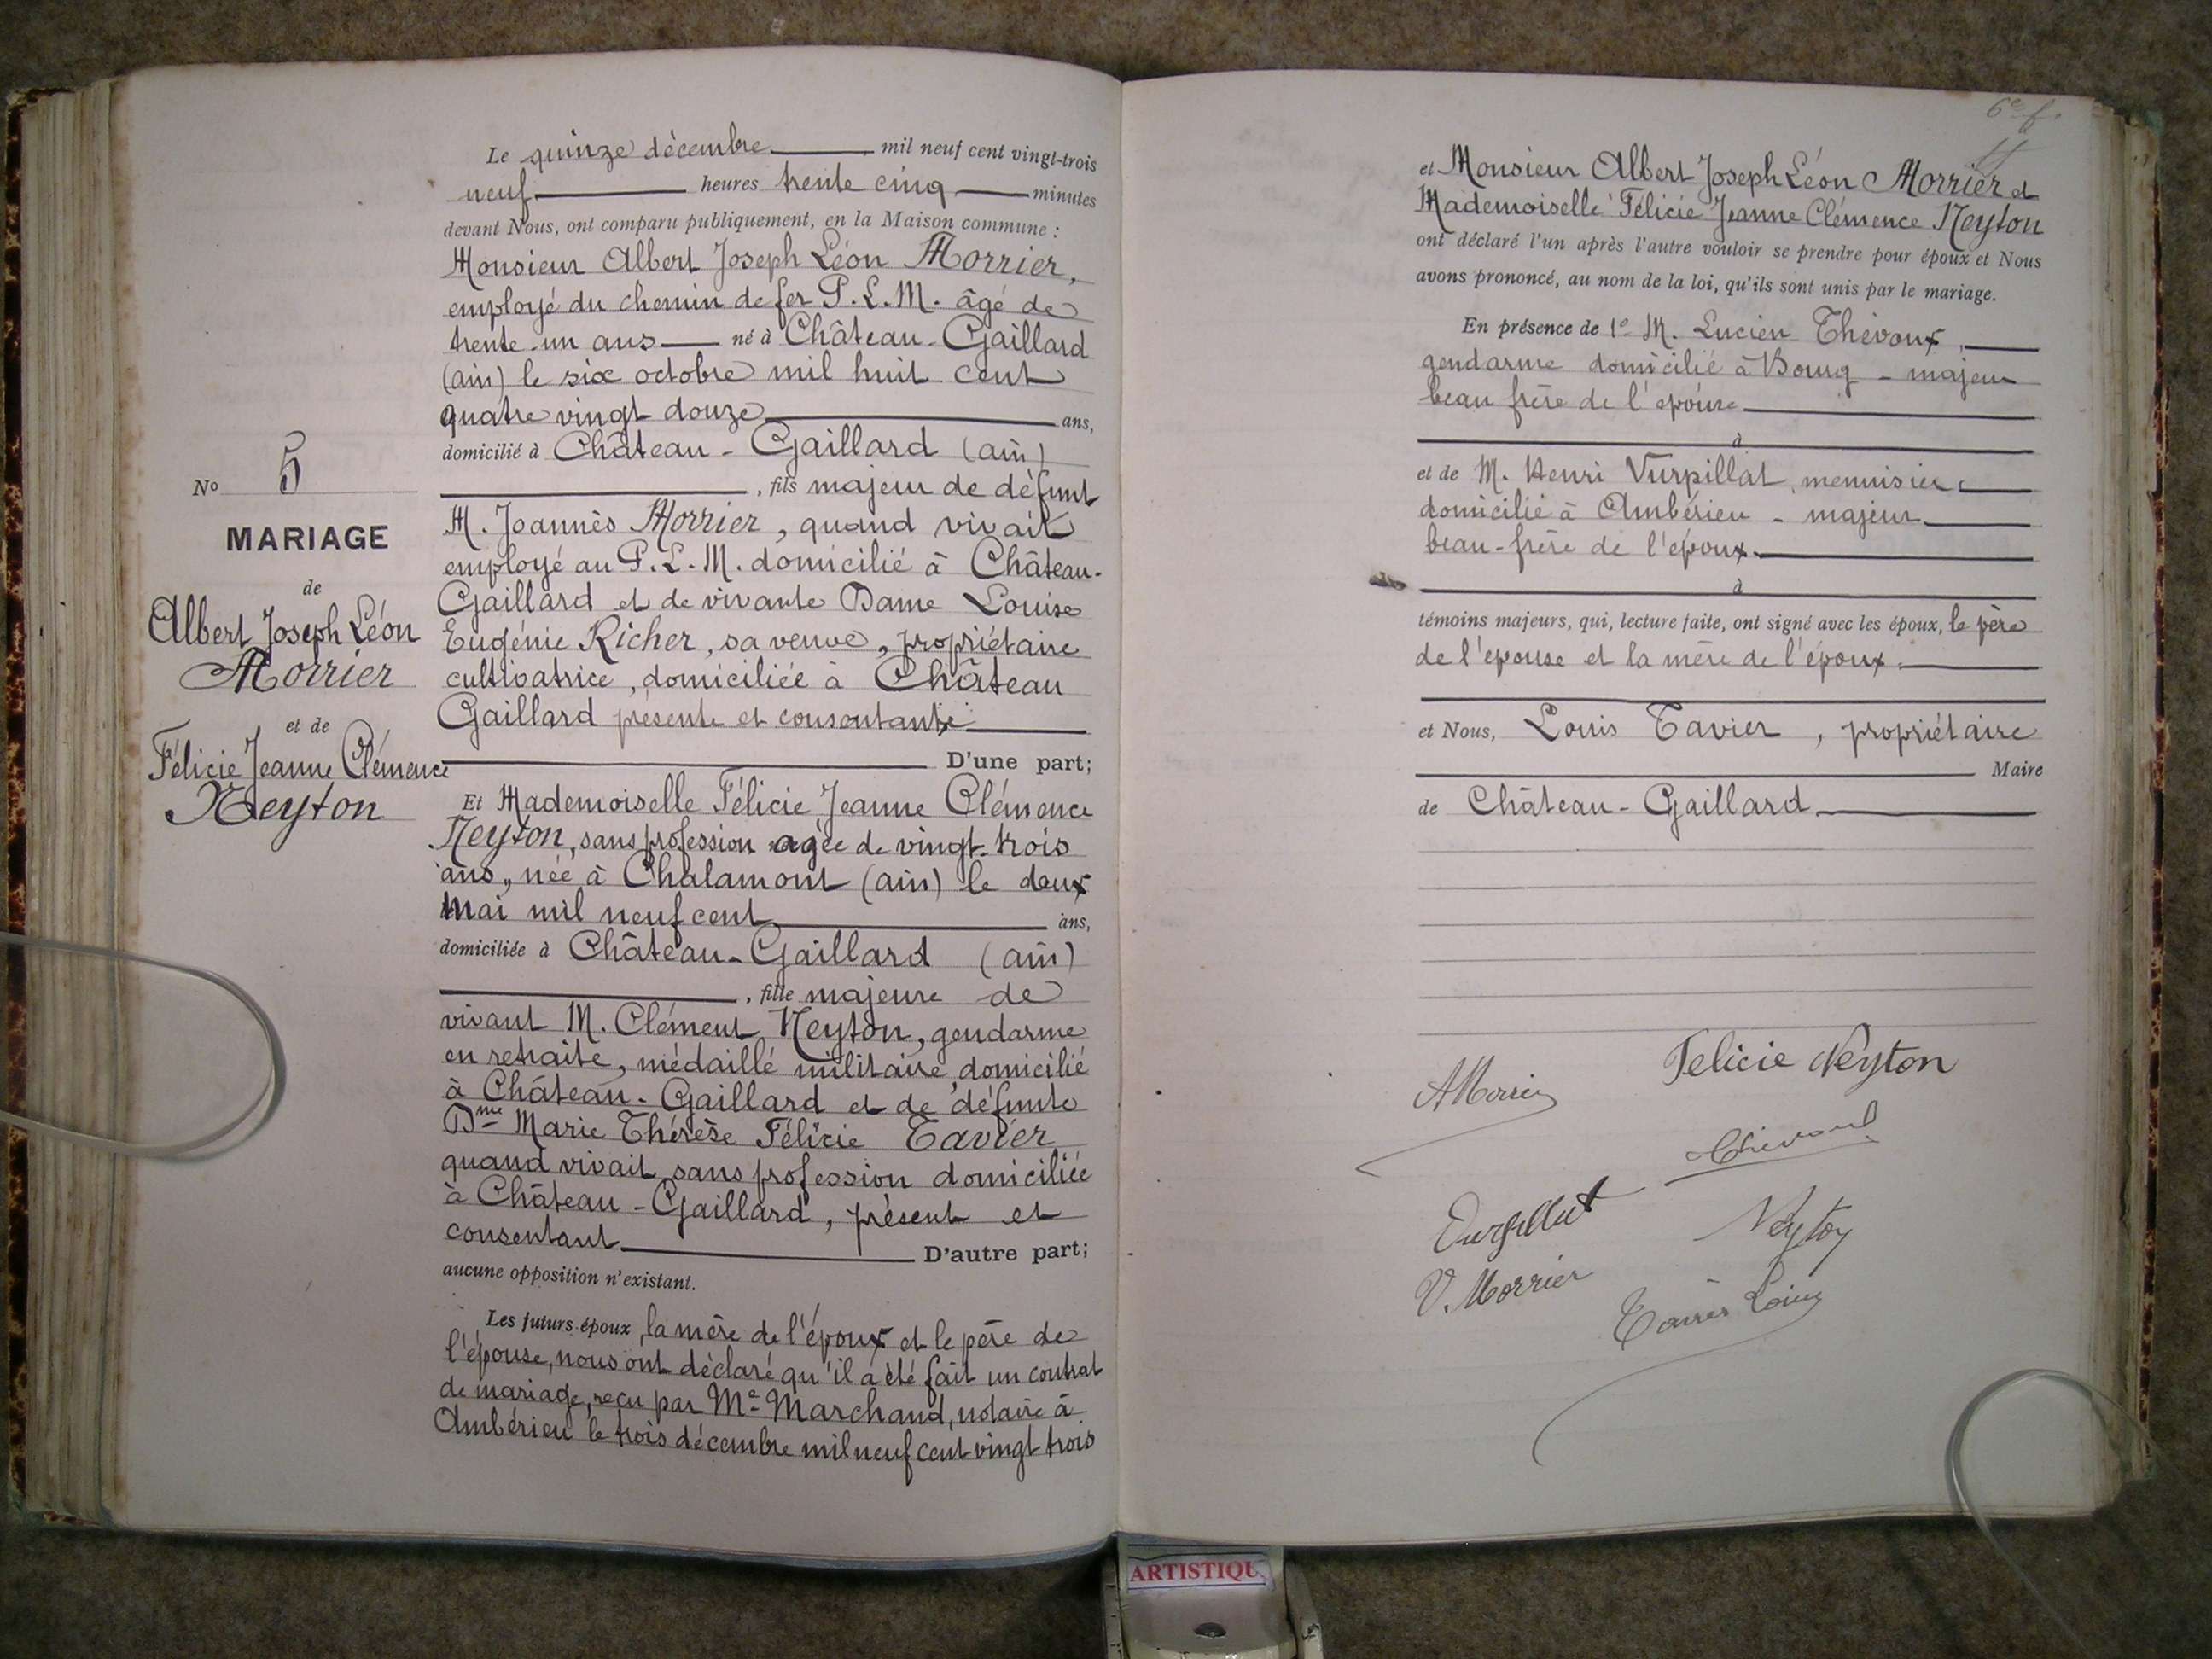 Le quinze décembre mil neuf cent vingt-trois
neuf heures trente cinq minutes
devant Nous, ont comparu publiquement, en la Maison commune :
Monsieur Albert Joseph Léon Morrier,
employé du chemin de fer P.L.M. âgé de
trente-un ans né à Château-Gaillard
(ain) le six octobre mil huit cent
quatre vingt douze ans,
domicilié à Château-Gaillard (ain)
, fils majeur de défunt
M. Joannès Morrier, quand vivait
employé au P.L.M. domicilié à Château-
Gaillard et de vivante Dame Louise
Eugénie Richer, sa veuve, propriétaire
cultivatrice, domiciliée à Château
Gaillard présente et consentante
D'une part;
No 5
MARIAGE
de
Albert Joseph Léon
Morrier
et de
Félicie Jeanne Clémence
Neyton
Et Mademoiselle Félicie Jeanne Clémence
Neyton, sans profession agée de vingt-trois
ans, née à Chalamont (ain) le deux
Mai mil neuf cent ans,
domiciliée à Château-Gaillard (ain)
, fille majeure de
vivant M. Clément Neyton, gendarme
en retraite, médaillé militaire, domicilié
à Château-Gaillard et de défunte
Dme Marie Thérèse Félicie Tavier
quand vivait sans profession domiciliée
à Château-Gaillard, présent et
consentant D'autre part;
aucune opposition n'existant.
Les futurs époux, la mère de l'époux et le père de
l'épouse, nous ont déclaré qu'il a été fait un contrat
de mariage, reçu par Me Marchand, notaire à
Ambérieu le trois décembre mil neuf cent vingt trois
6e f.
et Monsieur Albert Joseph Léon Morrier et
Mademoiselle Félicie Jeanne Clémence Neyton
ont déclaré l'un après l'autre vouloir se prendre pour époux et Nous
avons prononcé, au nom de la loi, qu'ils sont unis par le mariage.
En présence de 1o M. Lucien Thévoux,
gendarme domicilié à Bourg - majeur
beau frère de l'épouse
à
et de M. Henri Vurpillat, menuisier
domicilié à Ambérieu - majeur
beau-frère de l'époux.
à
témoins majeurs, qui, lecture faite, ont signé avec les époux, le père
de l'épouse et la mère de l'époux.
et Nous, Louis Tavier, propriétaire
Maire
de Château-Gaillard
AMorrier
Felicie Neyton
Vurpillat
Neyton
V. Morrier
Tavier Louis
ARTISTIQU